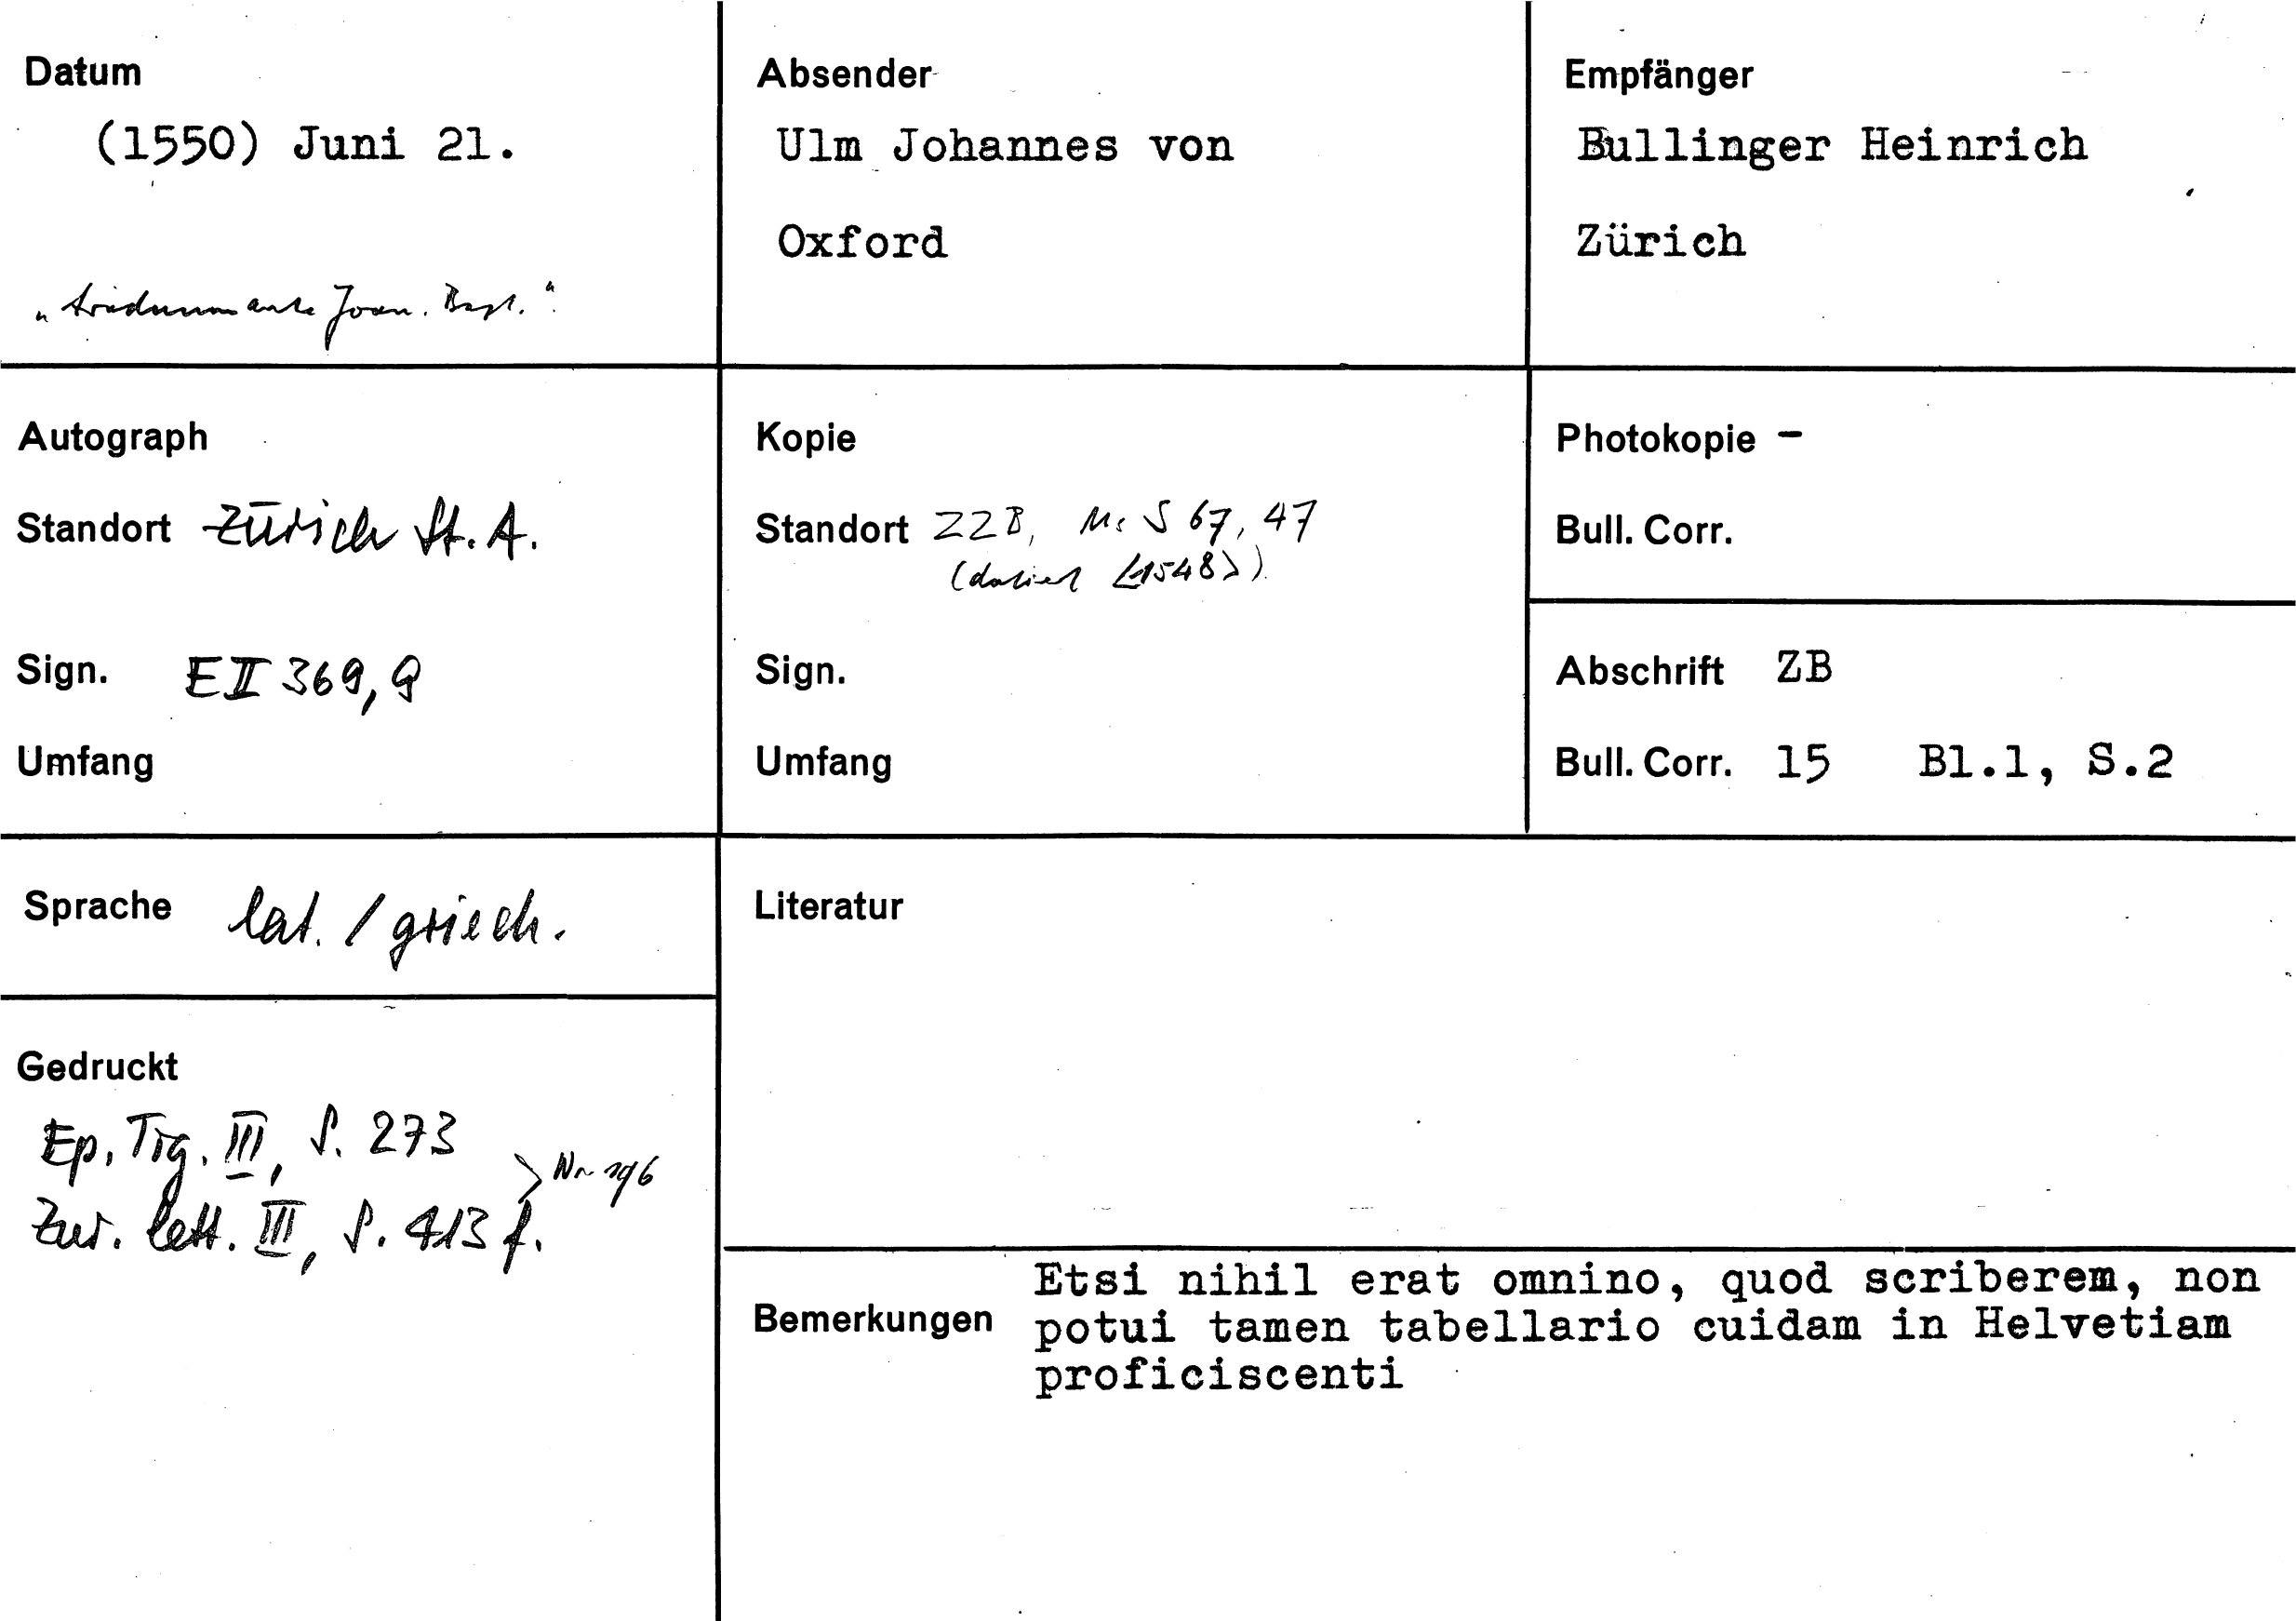 Datum
(1550) Juni 21.
"triduum ante Joan. Bapt."
Absender
Ulm Johannes von
Oxford
Empfänger
Bullinger Heinrich
Zürich
Autograph
Standort Zürich St. A.
Sign. E II 369, 9
Umfang
Kopie
Standort ZZB, Ms S 67, 47
(datiert <1548>)
Sign.
Umfang
Photokopie -
Bull. Corr.
Abschrift ZB
Bull. Corr. 15 Bl.1, S.2
Sprache lat. / griech.
Gedruckt
Ep. Tig. III, S. 273
Nr 196
Zur. lett. III, S. 413 f.
Literatur
Bemerkungen
Etsi nihil erat omnino, quod scriberem, non
potui tamen tabellario cuidam in Helvetiam
proficiscenti